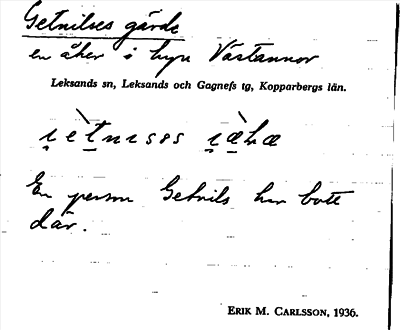 Getnilses gärde
en åker i byn Västannor
Leksands sn, Leksands och Gagnefs tg, Kopparbergs län.
En person Getnils har bott
där.
ERIK M. CARLSSON, 1936.